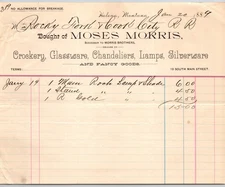 NO ALLOWANCE FOR BREAKAGE.
Helena, Montana, Jan 20 1889
M Rocky Fork & Cook City R R
Bought of MOSES MORRIS,
SUCCESSOR TO MORRIS BROTHERS,
DEALER IN
Crockery, Glassware, Chandeliers, Lamps, Silverware
AND FANCY GOODS.
19 SOUTH MAIN STREET.
Jany 19 1 Lamp & Shade 6.00
1 Stand
1 R Gold